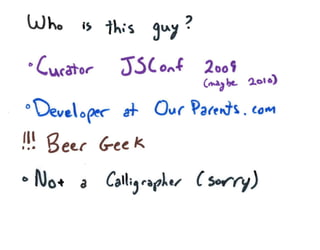 Who is this guy?
• Curator JSConf 2009
(maybe 2010)
• Developer at OurParents.com
!!! Beer Geek
• Not a Calligrapher (sorry)